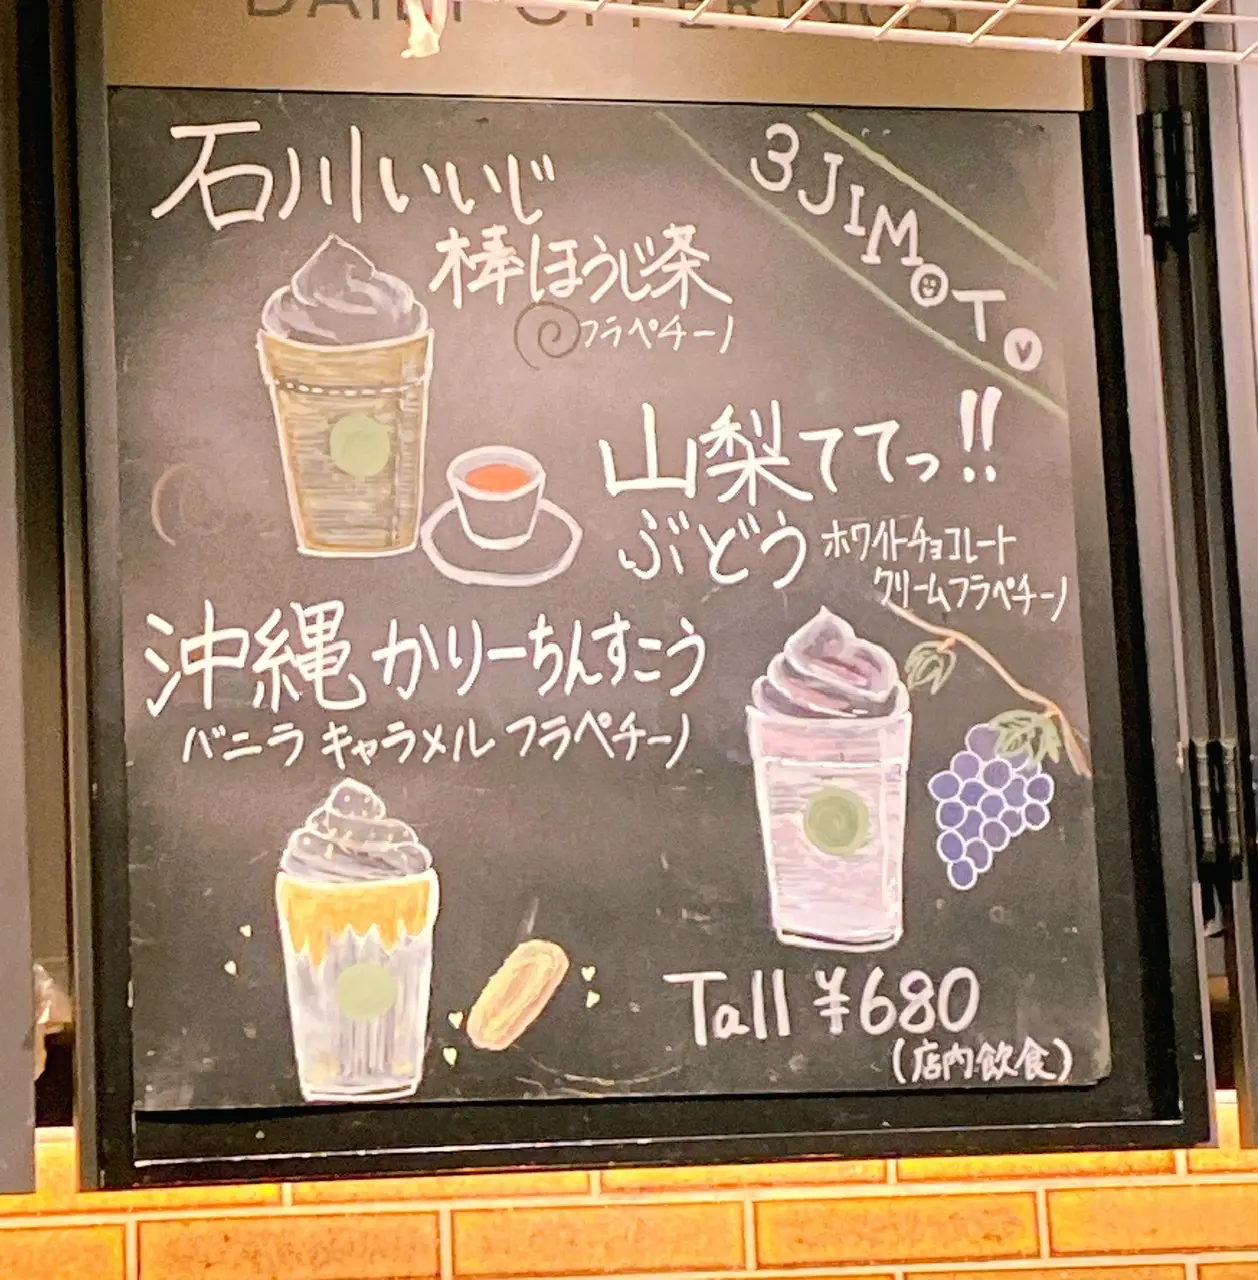 DAILY OFFERINGS
3 JIMOTO
石川いいじ
棒ほうじ茶
フラペチーノ
山梨ててっ!!
ぶどう ホワイトチョコレート
クリームフラペチーノ
沖縄かりーちんすこう
バニラ キャラメル フラペチーノ
Tall ¥680
(店内飲食)